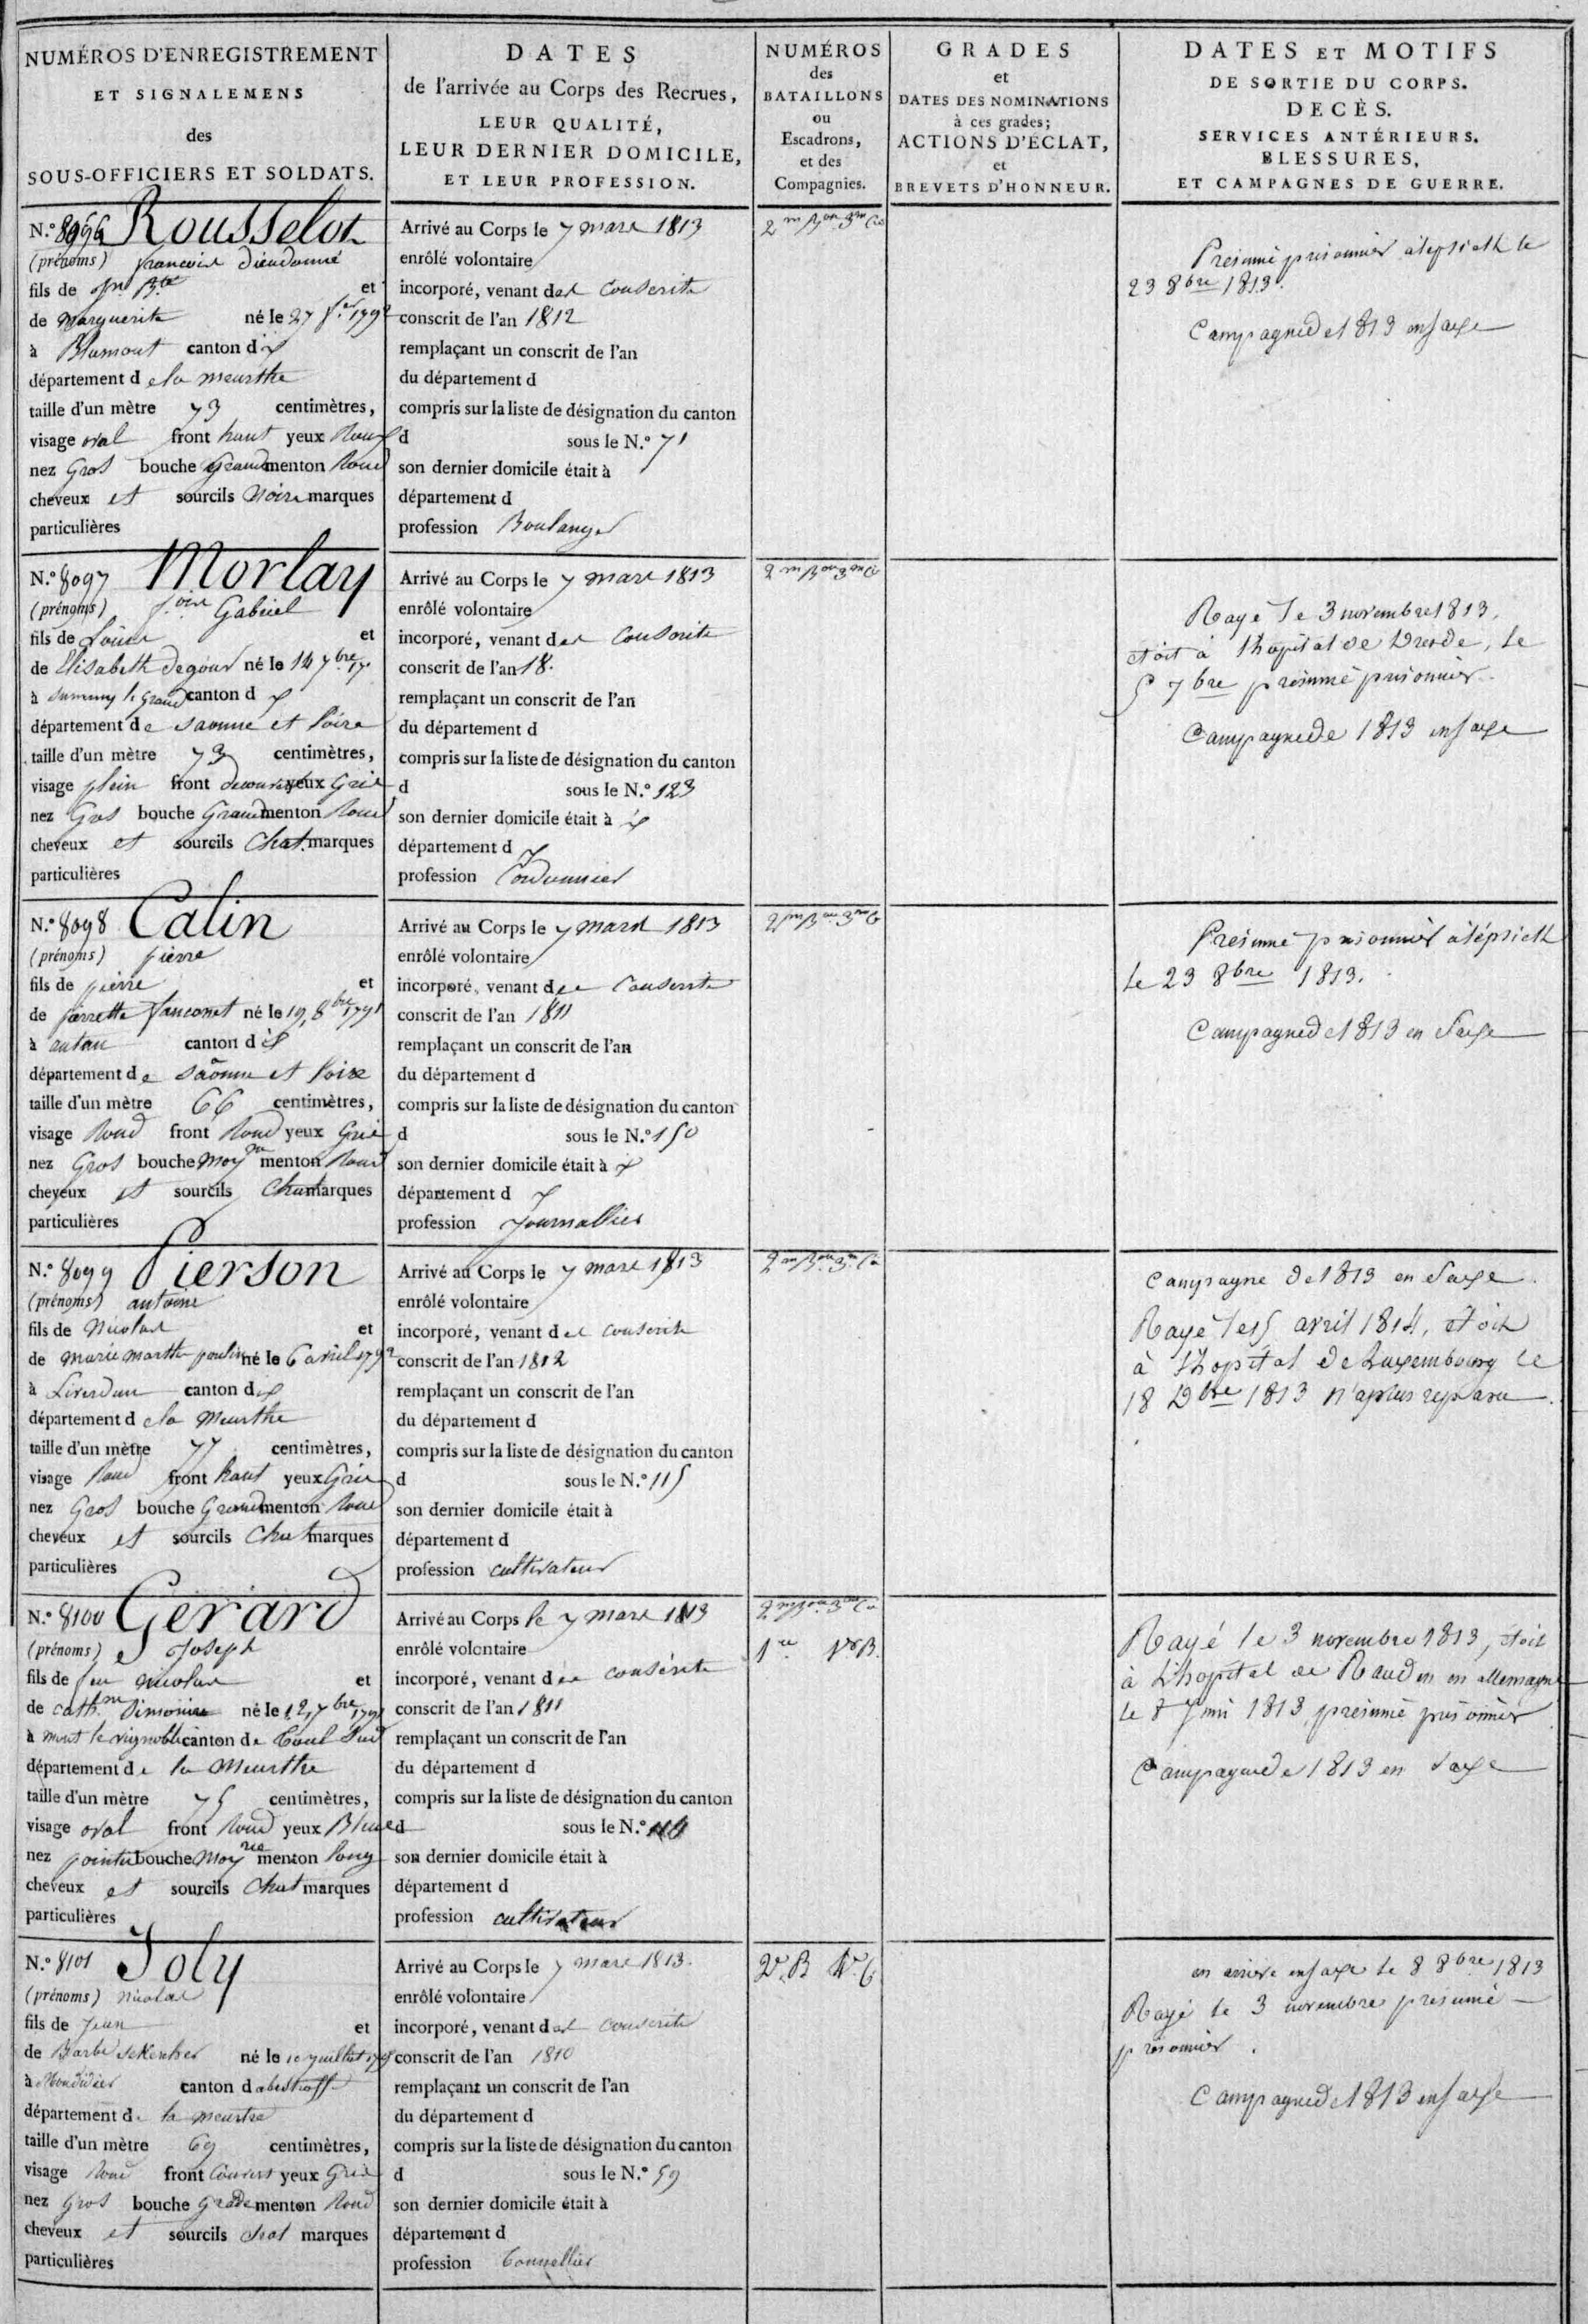 NUMÉROS D'ENREGISTREMENT
ET SIGNALEMENS
des
SOUS-OFFICIERS ET SOLDATS.
DATES
de l'arrivée au Corps des Recrues,
LEUR QUALITÉ,
LEUR DERNIER DOMICILE,
ET LEUR PROFESSION.
NUMÉROS
des
BATAILLONS
ou
Escadrons,
et des
Compagnies.
GRADES
et
DATES DES NOMINATIONS
à ces grades;
ACTIONS D'ÉCLAT,
et
BREVETS D'HONNEUR.
DATES ET MOTIFS
DE SORTIE DU CORPS.
DECÈS.
SERVICES ANTÉRIEURS.
BLESSURES,
ET CAMPAGNES DE GUERRE.
N.o 8096 Rousselot
(prénoms) francois dieudonné
fils de Jn Bte et
de Marguerite né le 27 1792
à Blamont canton d
département de la meurthe
taille d'un mètre 73 centimètres,
visage oval front haut yeux Roux
nez Gros bouche Grand menton Rond
cheveux et sourcils Noirs marques
particulières
Arrivé au Corps le 7 mars 1813
enrôlé volontaire
incorporé, venant des Conscrits
conscrit de l'an 1812
remplaçant un conscrit de l'an
du département d
compris sur la liste de désignation du canton
d sous le N.o 71
son dernier domicile était à
département d
profession Boulanger
2me Bon 3me Cie
Présumé prisonnier à lepsick le
23 8bre 1813.
Campagne de 1813 en saxe
N.o 8097 Morlay
(prénoms) Gabriel
fils de Louis et
de Elisabeth degour né le 14 7bre 17
à Summy le grand canton d
département de saonne et loire
taille d'un mètre 73 centimètres,
visage plein front decouvert yeux Gris
nez Gros bouche Grand menton Rond
cheveux et sourcils Chat. marques
particulières
Arrivé au Corps le 7 mars 1813
enrôlé volontaire
incorporé, venant des Conscrits
conscrit de l'an 18.
remplaçant un conscrit de l'an
du département d
compris sur la liste de désignation du canton
d sous le N.o 123
son dernier domicile était à
département d
profession Cordonnier
2me Bon 3me Cie
Rayé le 3 novembre 1813,
étoit à l'hopital de Dresde, le
5 7bre présumé prisonnier.
Campagne de 1813 en saxe
N.o 8098 Catin
(prénoms) pierre
fils de pierre et
de pierrette fanconet né le 19, 8bre 1791
à autun canton d
département de saonne et Loire
taille d'un mètre 66 centimètres,
visage Rond front Rond yeux Gris
nez Gros bouche moyne menton Rond
cheveux et sourcils Chat marques
particulières
Arrivé au Corps le 7 mars 1813
enrôlé volontaire
incorporé, venant des Conscrits
conscrit de l'an 1811
remplaçant un conscrit de l'an
du département d
compris sur la liste de désignation du canton
d sous le N.o 150
son dernier domicile était à
département d
profession Journallier
2me Bon 3me Cie
Présumé prisonnier à lépsick
le 23 8bre 1813.
Campagne de 1813 en Saxe
N.o 8099 Pierson
(prénoms) antoine
fils de Nicolas et
de marie marthe poulin né le 6 avril 1792
à Liverdun canton d
département de la Meurthe
taille d'un mètre 77 centimètres,
visage Rond front haut yeux Gris
nez Gros bouche Grand menton Rond
cheveux et sourcils Chat marques
particulières
Arrivé au Corps le 7 mars 1813
enrôlé volontaire
incorporé, venant des conscrits
conscrit de l'an 1812
remplaçant un conscrit de l'an
du département d
compris sur la liste de désignation du canton
d sous le N.o 115
son dernier domicile était à
département d
profession cultivateur
2me Bon 3me Cie
Campagne de 1813 en Saxe.
Rayé le 15 avril 1814, étoit
à l'hopital de Luxembourg le
18 Dbre 1813 n'a plus reparu.
N.o 8100 Gerard
(prénoms) Joseph
fils de feu nicolas et
de cathne Simonin né le 12, 7bre 1791
à mont le vignoble canton de Toul Sud
département de la Meurthe
taille d'un mètre 75 centimètres,
visage oval front Rond yeux Bleus
nez pointu bouche moyne menton long
cheveux et sourcils Chat marques
particulières
Arrivé au Corps le 7 mars 1813
enrôlé volontaire
incorporé, venant des conscrits
conscrit de l'an 1811
remplaçant un conscrit de l'an
du département d
compris sur la liste de désignation du canton
d sous le N.o
son dernier domicile était à
département d
profession cultivateur
2me Bon 3me Cie
Rayé le 3 novembre 1813, étoit
à l'hopital de Bauden en allemagne
le 8 Juin 1813 présumé prisonnier
Campagne de 1813 en saxe
N.o 8101 Joly
(prénoms) Nicolas
fils de Jean et
de Barbe né le 10 juillet 17
à Mondidier canton d abestroff
département de la meurtre
taille d'un mètre 69 centimètres,
visage Rond front Couvert yeux Gris
nez Gros bouche Grade menton Rond
cheveux et sourcils chat marques
particulières
Arrivé au Corps le 7 mars 1813.
enrôlé volontaire
incorporé, venant des conscrits
conscrit de l'an 1810
remplaçant un conscrit de l'an
du département d
compris sur la liste de désignation du canton
d sous le N.o 59
son dernier domicile était à
département d
profession Tonnellier
en arriere en saxe le 8 8bre 1813
Rayé le 3 novembre présumé
prisonnier.
Campagne de 1813 en saxe